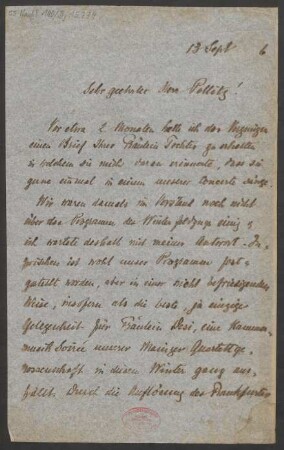 13 Sept 6
Sehr geehrter Herr Pollitz!
Vor etwa 2 Monaten hatte ich das Vergnügen
einen Brief Ihrer Fräulein Tochter zu erhalten
in welchem sie mich daran erinnerte, dass sie
gerne einmal in einem unserer Concerte singe.
Wir waren damals im Vorstand noch nicht
über das Programm des Winterfeldzugs einig &
ich wartete deshalb mit meiner Antwort. In-
zwischen ist wohl unser Programm fest-
gestellt worden, aber in einer nicht befriedigenden
Weise, insofern als die beste, ja einzige
Gelegenheit für Fräulein Desi, eine Kammer-
musik Soirée unserer Mainzer Quartettge-
nossenschaft in diesem Winter ganz aus-
fällt. Durch die Auflösung des Frankfurter